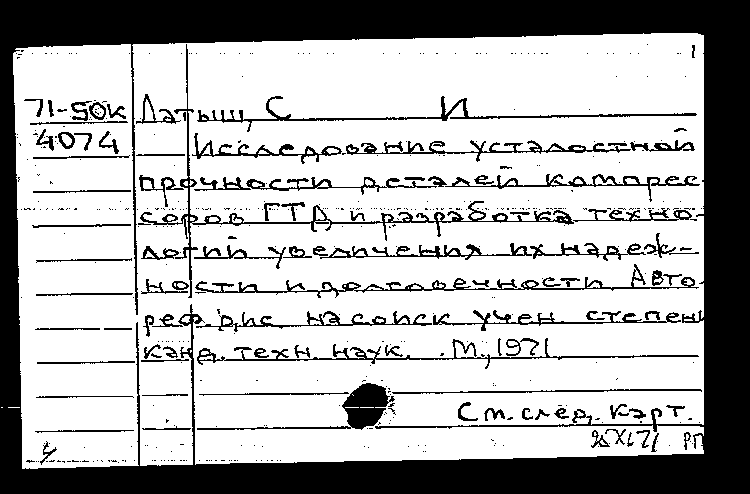 1
71-50к Латыш, С И
4074 Исследование усталостной
прочности деталей компрес-
соров ГТД и разработка техно-
логий увеличения их надеж-
ности и долговечности. Авто-
реф. дис. на соиск учен. степени
канд. техн. наук. М., 1971.
См. след. карт.
РП